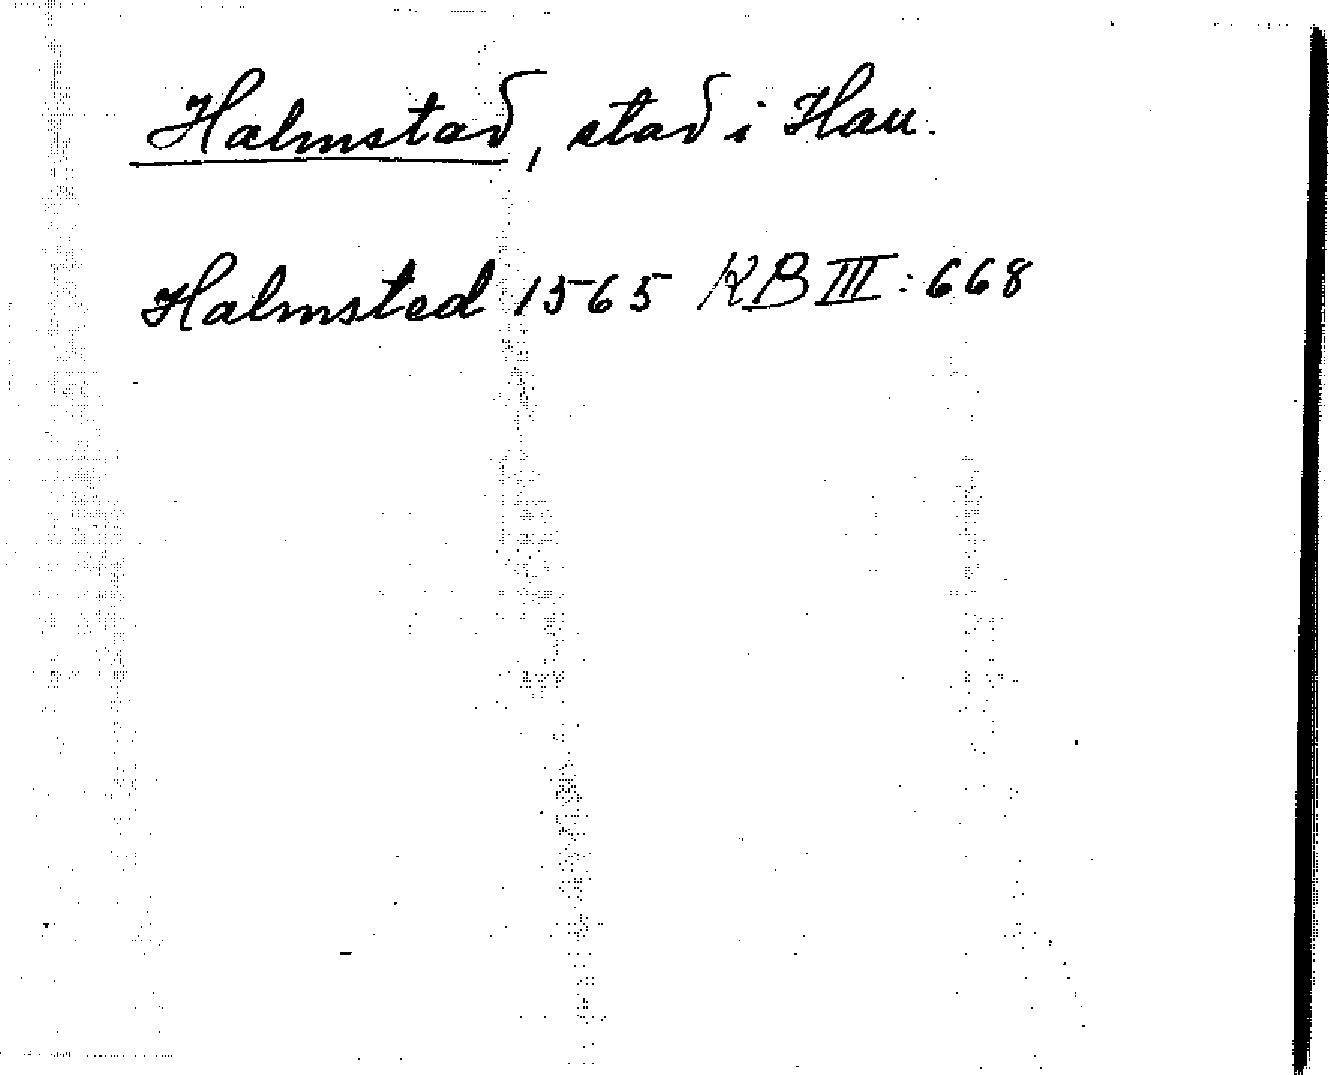 Halmstad, stad i Hall.
Halmsted 1565 KB III: 668